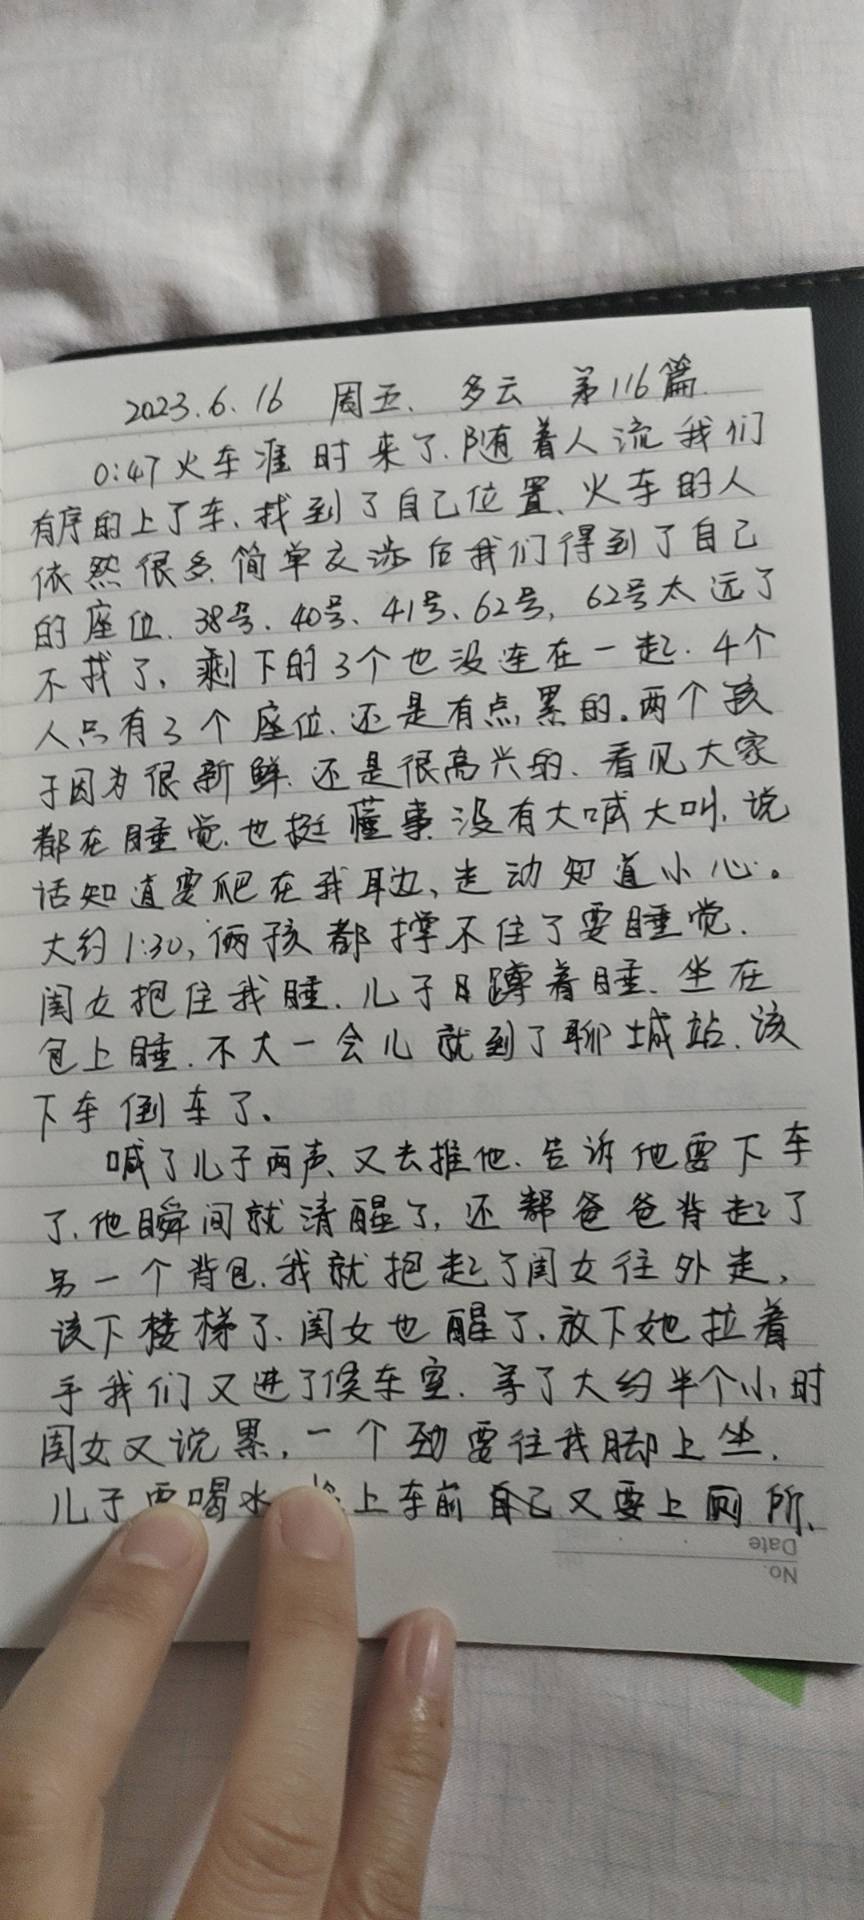 2023.6.16 周五、多云 第116篇.
0:47火车准时来了.随着人流我们
有序的上了车、找到了自己位置、火车的人
依然很多.简单交涉后我们得到了自己
的座位、38号、40号、41号、62号,62号太远了
不找了,剩下的3个也没连在一起.4个
人只有3个座位.还是有点累的。两个孩
子因为很新鲜.还是很高兴的、看见大家
都在睡觉.也挺懂事.没有大喊大叫.说
话知道要爬在我耳边、走动知道小心。
大约1:30,俩孩都撑不住了要睡觉.
闺女抱住我睡.儿子蹲着睡.坐在
包上睡.不大一会儿就到了聊城站.该
下车倒车了.
喊了儿子两声.又去推他.告诉他要下车
了.他瞬间就清醒了,还帮爸爸背起了
另一个背包.我就抱起了闺女往外走,
该下楼梯了.闺女也醒了.放下她拉着
手我们又进了候车室.等了大约半个小时
闺女又说累,一个劲要往我脚上坐.
儿子要喝水 上车前自己又要上厕所、
Date
No.